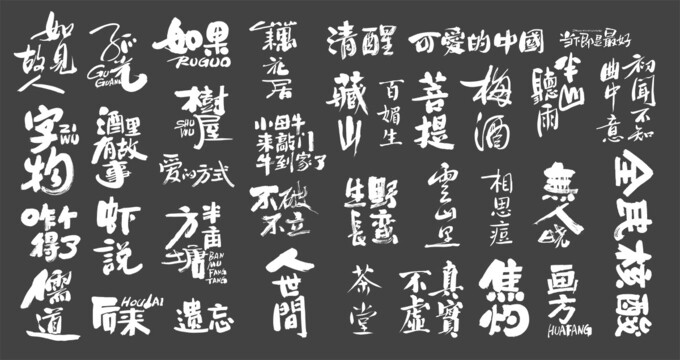 如見
故人
孤光
GU
GUANG
如果
RUGUO
藕
花
居
清醒
可愛的中國
当下即是最好
初聞不知
曲中意
半山
聽雨
字物
ZI
WU
酒里
有故
事
樹
屋
SHU
WU
爱的方式
小母牛
来敲门
牛到家了
藏
山
百
媚
生
菩
提
梅
酒
咋个
得了
虾
説
半亩
方塘
BAN
MU
FANG
TANG
不破
不立
野蛮
生長
雲
山
里
相
思
痘
無
人
晓
全民核酸
儒
道
后来
HOULAI
遗忘
人
世
間
茶
堂
真實
不虛
焦
灼
画
方
HUAFANG